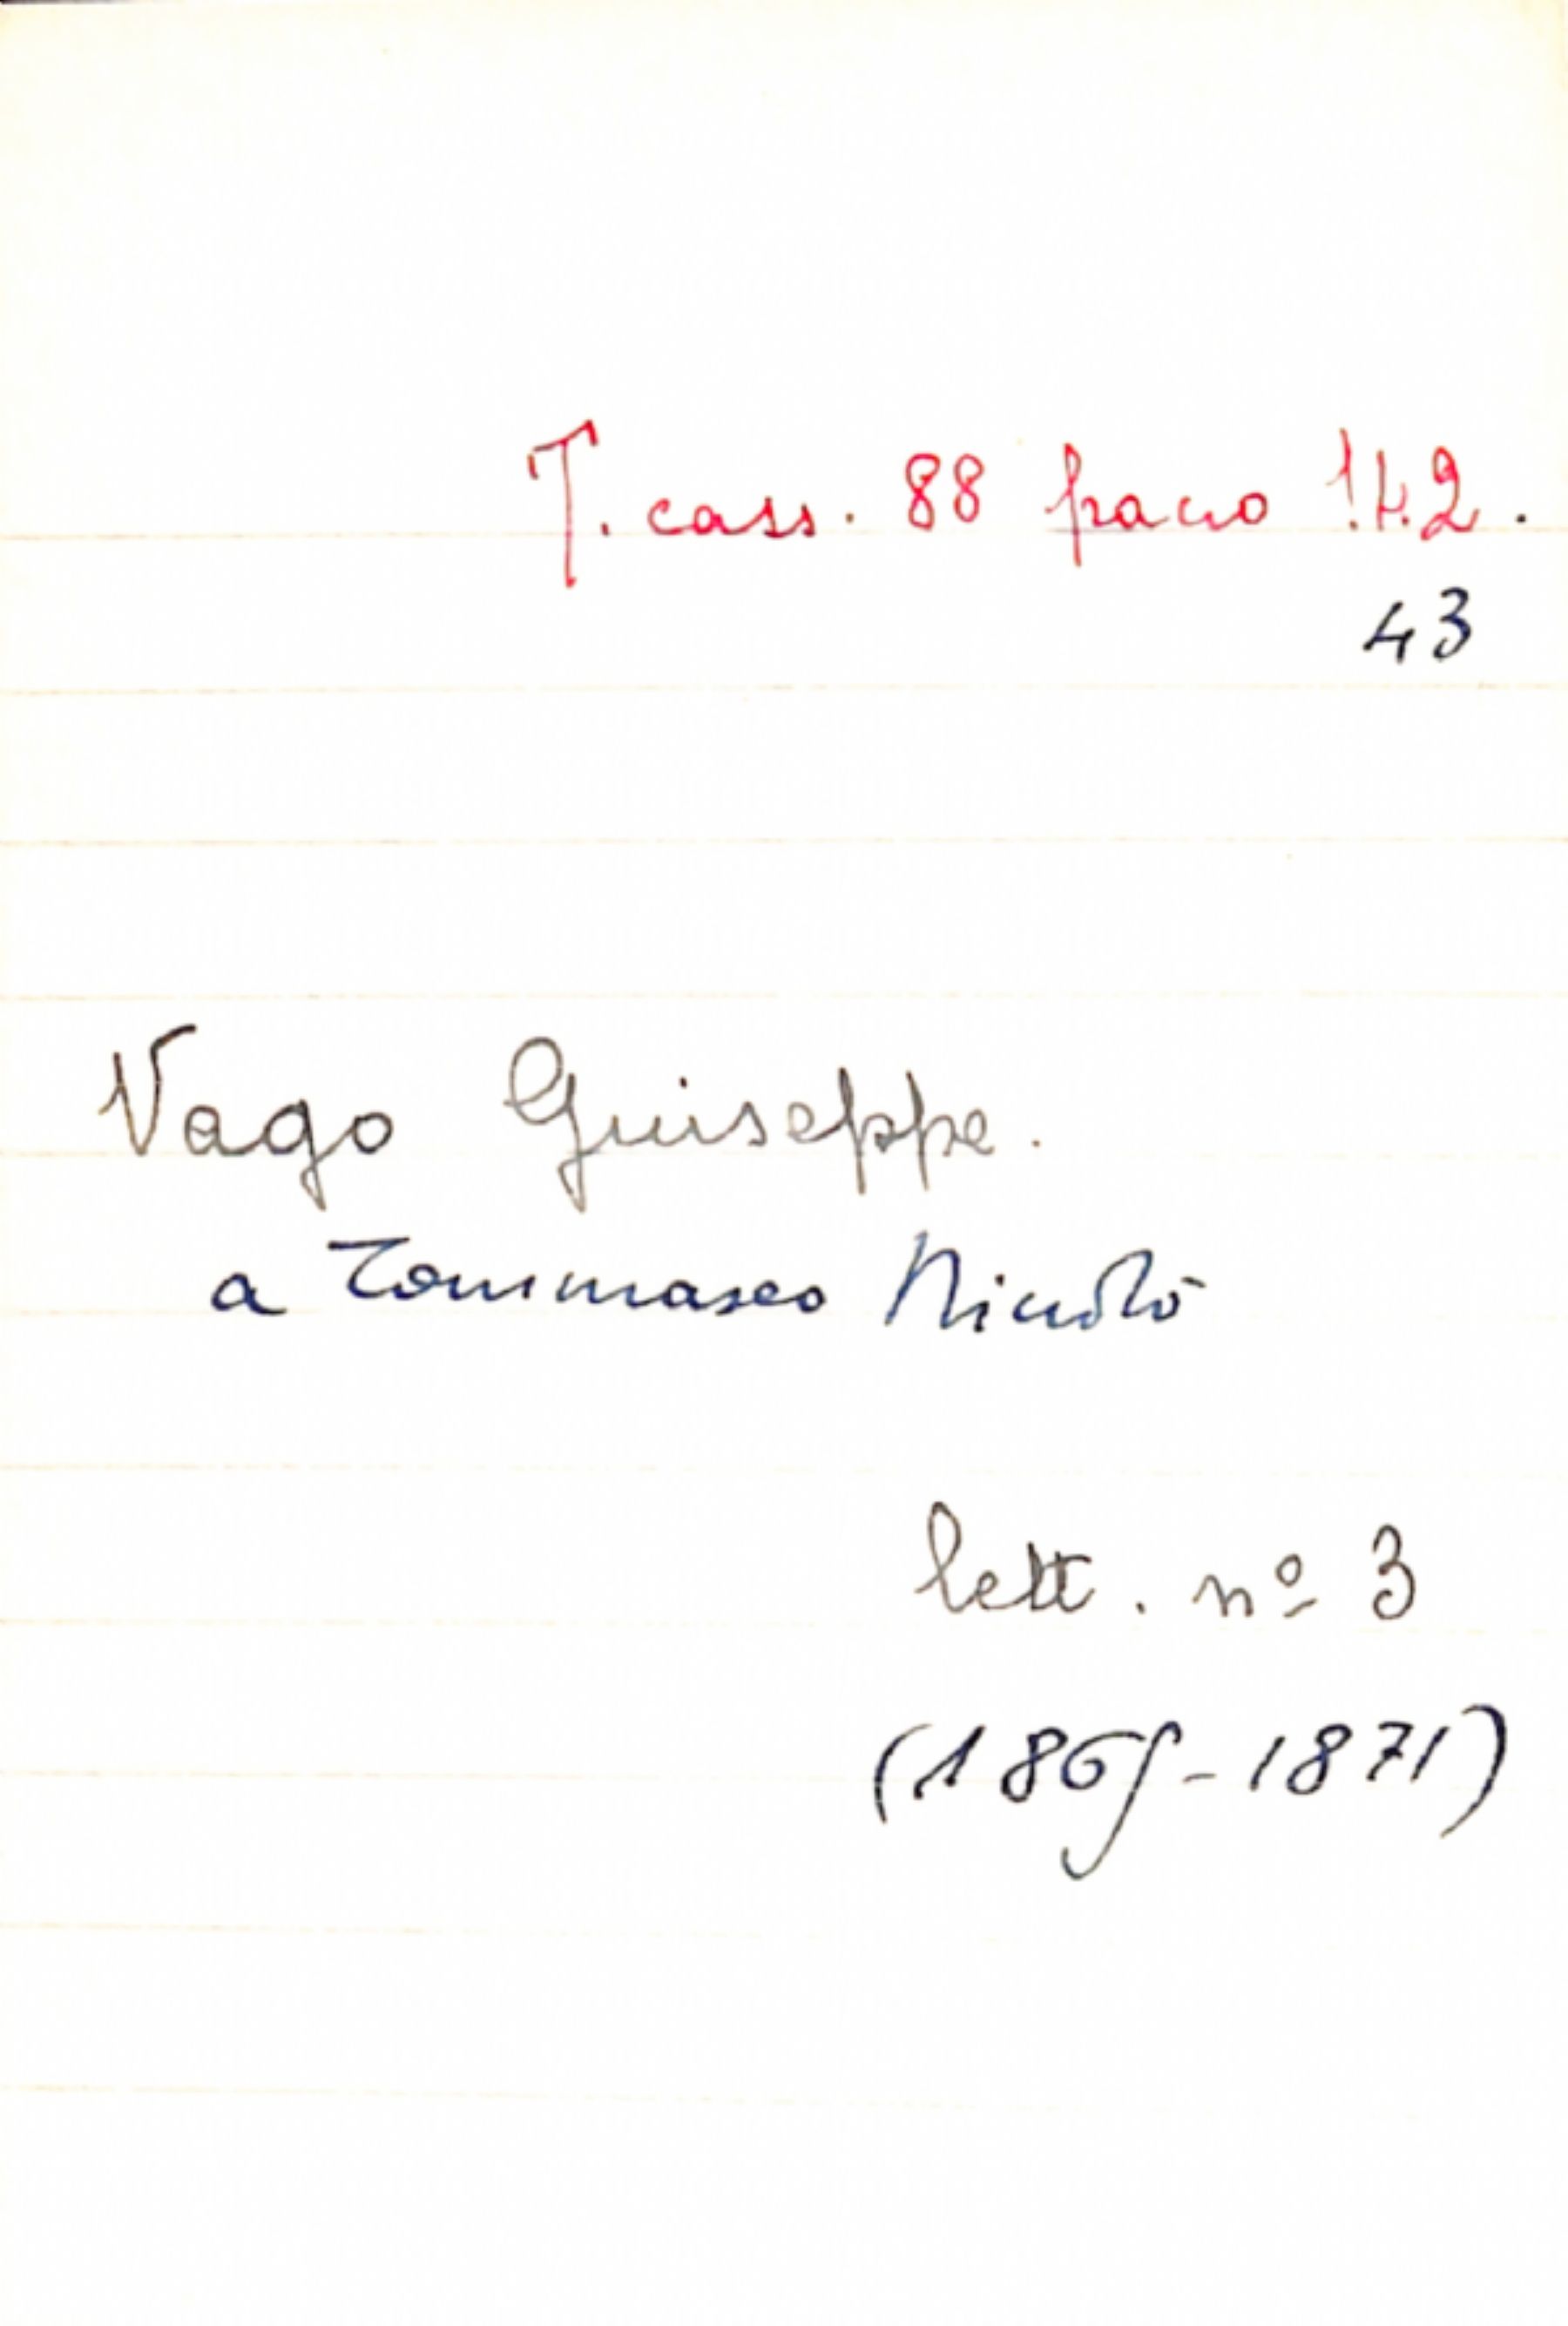 T. cass. 88 pacco 142.
43
Vago Giuseppe.
a Tommaseo Niccolò
lett. nº 3
(1865-1871)